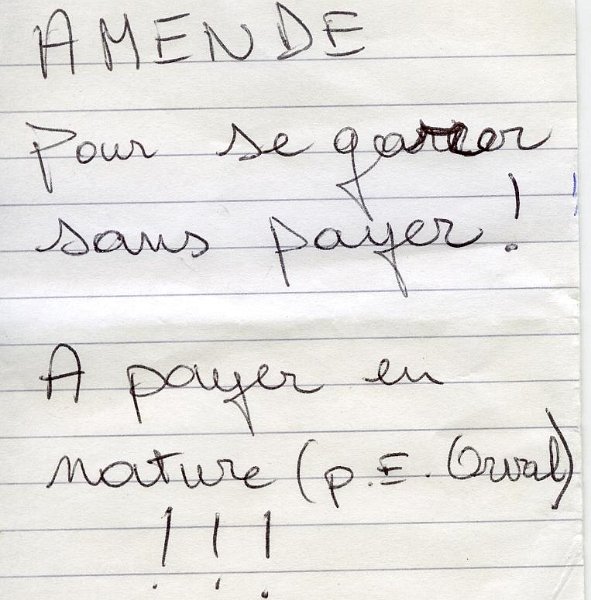 AMENDE
Pour se garer
sans payer!
A payer en
nature (p.E. Orval)
!!!